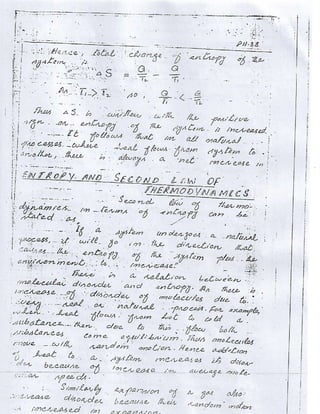 PH-38
Hence, total change of entropy of the
system is
ΔS = Q/T₂ - Q/T₁
As T₁ > T₂ so, Q/T₁ < Q/T₂
Thus ΔS is written with the positive
sign on entropy of the system is increased.
It follows that in all natural
processes where heat flows from system to
another, there is always a net increase in
ENTROPY AND SECOND LAW OF
THERMODYNAMICS
Second law of thermo-
dynamics in terms of entropy can be
stated as
If a system undergoes a natural
process, it will go in the direction that
causes the entropy of the system plus the
environment to increase.
There is a relation between
molecular disorder and entropy. As there is
increase of disorder of molecules due to
every real or natural process. For example,
when heat flows from hot to cold
substance then due to this flow both
substances come equilibrium. Thus molecules
move with random motion. Hence addition
of heat to a system increases its disor-
der because of increase in average mole-
cular speeds.
Similarly expansion of a gas also
increase disorder because their random
is increased in expansion